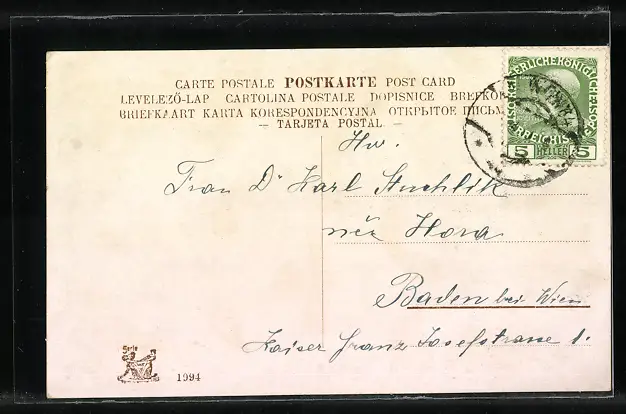 CARTE POSTALE POSTKARTE POST CARD
LEVELEZŐ-LAP CARTOLINA POSTALE DOPISNICE BREFKO
BRIEFKAART KARTA KORESPONDENCYJNA ОТКРЫТОЕ ПИСЬМ
— TARJETA POSTAL —
SERLICHEKÖNIGLICHEÖS
RREICHIS
5 HELLER 5
Hw.
Frau Dr Karl Stuchlik
née Hora
Baden bei Wien
Kaiser Franz Josefstrasse 1.
Serie
1994